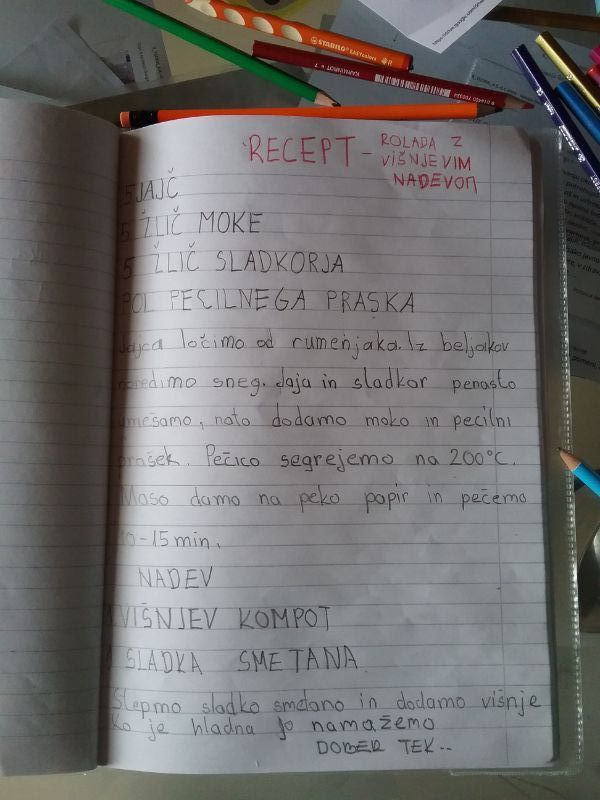 STABILO EASYcolors
RECEPT - ROLADA Z
VIŠNJEVIM
NADEVOM
5 JAJČ
5 ŽLIČ MOKE
5 ŽLIČ SLADKORJA
POL PECILNEGA PRAŠKA
Jajca ločimo od rumenjaka. Iz beljakov
naredimo sneg. Jaja in sladkor penasto
umešamo, nato dodamo moko in pecilni
prašek. Pečico segrejemo na 200°C.
Maso damo na peko papir in pečemo
10-15 min.
NADEV
VIŠNJEV KOMPOT
SLADKA SMETANA
Stepmo sladko smetano in dodamo višnje
ko je hladna jo namažemo
DOBER TEK..